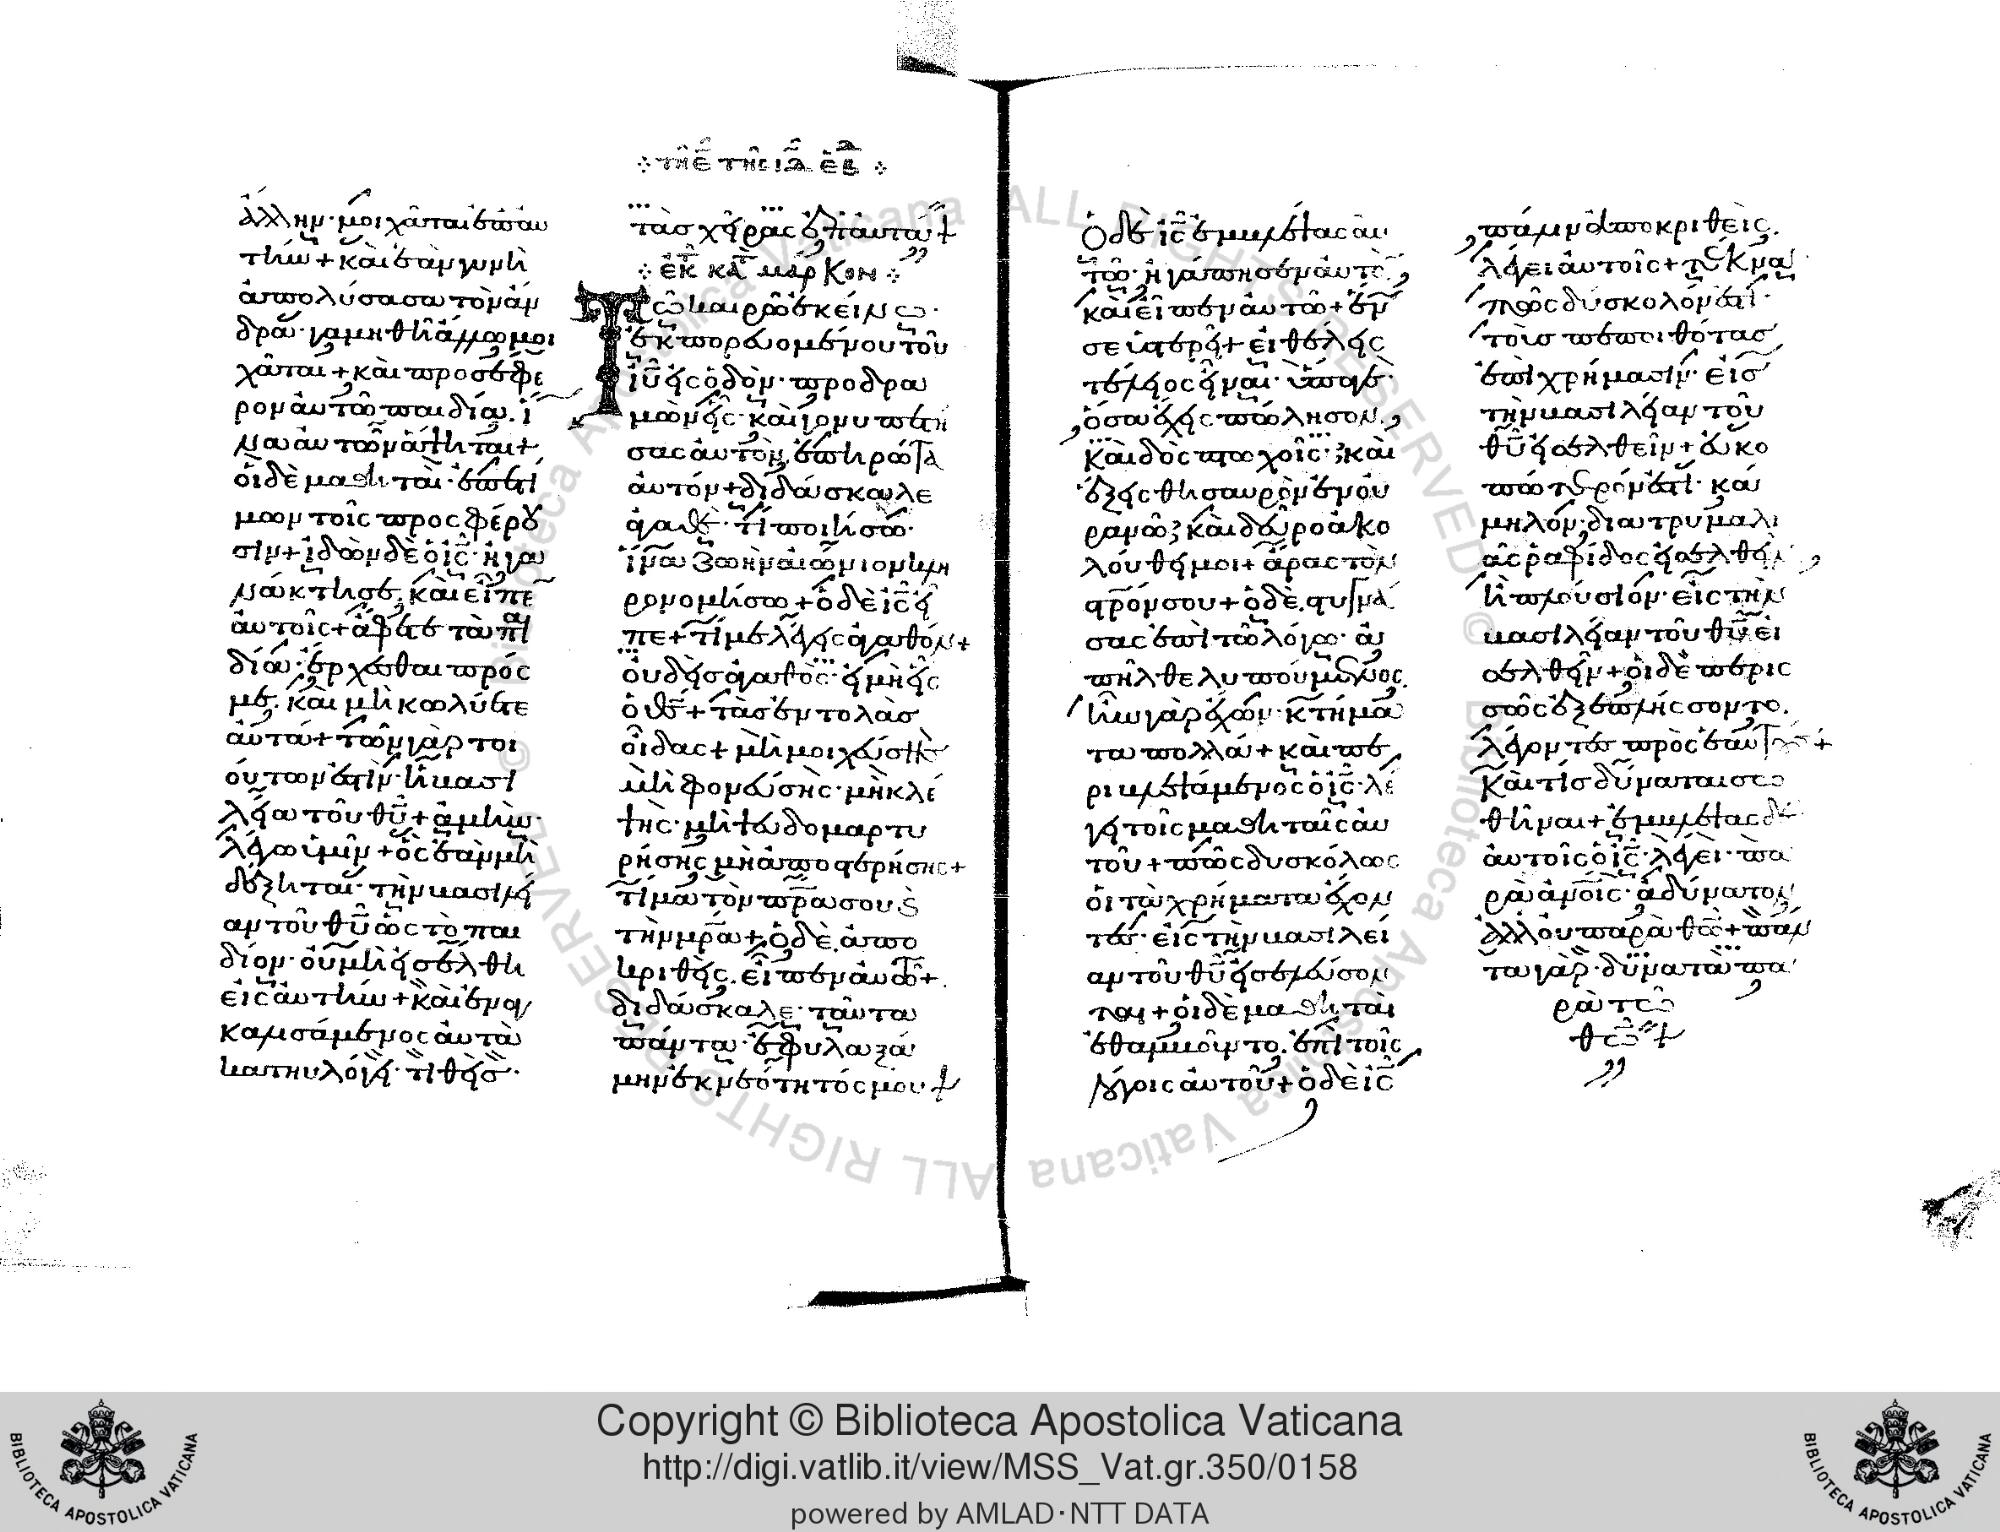 ⁘ τῆ ε̅ τῆς ιδ̅ ἑβ ⁘
ἄλλην· μοιχᾶται ἐπ' αὐ
τήν + καὶ ἐὰν γυνὴ
ἀπολύσασα τὸν ἄν
δρα· γαμηθῆ ἄλλω μοι
χᾶται + καὶ προσέφε
ρον αὐτῶ παιδία. ἵ
να αὐτῶν ἅπτηται +
οἱ δὲ μαθηταὶ· ἐπετί
μων τοῖς προσφέρου
σιν + ἰδὼν δὲ ὁ ι̅ς̅· ἠγα
νάκτησε. καὶ εἶπε
αὐτοῖς + ἄφετε τὰ παι
δία· ἔρχεσθαι πρός
με. καὶ μὴ κωλύετε
αὐτά + τῶν γὰρ τοι
ούτων ἐστὶν· ἡ βασι
λεία τοῦ θ̅υ̅ + ἀμὴν·
λέγω ὑμῖν + ὃς ἐὰν μὴ
δέξηται· τὴν βασιλεί
αν τοῦ θ̅υ̅ ὡς τὸ παι
δίον· οὐ μὴ εἰσέλθη
εἰς αὐτήν + καὶ ἐναγ
καλισάμενος αὐτὰ
κατηυλόγει· τιθεὶς·
τὰς χεῖρας ἐπ' αὐτά +
⁘ ἐκ κα̅τ̅ μάρκον ⁘
Τῶ καιρῶ ἐκείνω·
ἐκπορευομένου τοῦ
ι̅υ̅ εἰς ὁδὸν· προσδρα
μὼν εἷς· καὶ γονυπετή
σας αὐτὸν, ἐπηρώτα
αὐτόν + διδάσκαλε
ἀγαθὲ· τί ποιήσω·
ἵνα ζωὴν αἰώνιον κλη
ρονομήσω + ὁ δὲ ι̅ς̅ εἶ
πε + τί με λέγεις ἀγαθόν +
οὐδεὶς ἀγαθὸς· εἰ μὴ εἷς
ὁ θ̅ς̅ + τὰς ἐντολὰς
οἶδας + μὴ μοιχεύσης·
μὴ φονεύσης· μὴ κλέ
ψης· μὴ ψευδομαρτυ
ρήσης μὴ ἀποστερήσης +
τίμα τὸν π̅ρ̅α σου ϗ
τὴν μ̅ρ̅α + ὁ δὲ, ἀπο
κριθεὶς. εἶπεν αὐτῶ +
διδάσκαλε· ταῦτα
πάντα· ἐφυλαξά
μην ἐκ νεότητός μου +
Ὁ δὲ ι̅ς̅ ἐμβλέψας αὐ
τῶ· ἠγάπησεν αὐτὸν
καὶ εἶπεν αὐτῶ + ἕν
σε ὑστερεῖ + εἰ θέλεις
τέλειος εἶναι· ὕπαγε·
ὅσα ἔχεις πώλησον,
καὶ δὸς πτωχοῖς· καὶ
ἕξεις θησαυρὸν ἐν οὐ
ρανῶ· καὶ δεῦρο ἀκο
λούθει μοι + ἄρας τὸν
στ̅ρ̅όν σου + ὁ δὲ. στυγνά
σας ἐπὶ τῶ λόγω· ἀ
πῆλθε λυπούμενος.
ἦν γὰρ ἔχων· κτήμα
τα πολλά + καὶ πε
ριβλεψάμενος ὁ ι̅ς̅· λέ
γει τοῖς μαθηταῖς αὐ
τοῦ + πῶς δυσκόλως
οἱ τὰ χρήματα ἔχον
τες· εἰς τὴν βασιλεί
αν τοῦ θ̅υ̅ εἰσελεύσον
ται + οἱ δὲ μαθηταὶ
ἐθαμβοῦντο. ἐπὶ τοῖς
λόγοις αὐτοῦ + ὁ δὲ ι̅ς̅
πάλιν ἀποκριθεὶς.
λέγει αὐτοῖς + τέκνα
πῶς δύσκολόν ἐστι·
τοὺς πεποιθότας
ἐπὶ χρήμασιν· εἰς
τὴν βασιλείαν τοῦ
θ̅υ̅ εἰσελθεῖν + εὐκο
πώτερόν ἐστι· κά
μηλον· διὰ τρυμαλι
ᾶς ῥαφίδος εἰσελθεῖν
ἢ πλούσιον· εἰς τὴν
βασιλείαν τοῦ θ̅υ̅ εἰ
σελθεῖν + οἱ δὲ περισ
σῶς ἐξεπλήσσοντο.
λέγοντες πρὸς ἑαυτούς +
καὶ τίς δύναται σω
θῆναι + ἐμβλέψας δὲ
αὐτοῖς ὁ ι̅ς̅· λέγει· πα
ρὰ ἀν̅ο̅ις· ἀδύνατον
ἀλλ' οὐ παρὰ θ̅ω̅ + πάν
τα γὰρ· δύνατὰ πα
ρὰ τῶ
θ̅ω̅ +
Copyright © Biblioteca Apostolica Vaticana
http://digi.vatlib.it/view/MSS_Vat.gr.350/0158
powered by AMLAD·NTT DATA
BIBLIOTECA APOSTOLICA VATICANA
BIBLIOTECA APOSTOLICA VATICANA
© Biblioteca Apostolica Vaticana ALL RIGHTS RESERVED © Biblioteca Apostolica Vaticana ALL RIGHTS RESERVED